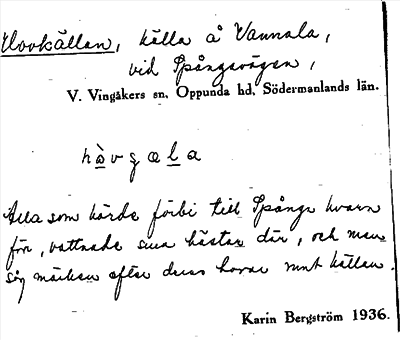 Hovkällan, källa å Vannala,
vid Spångavägen,
V. Vingåkers sn, Oppunda hd, Södermanlands län.
Alla som körde förbi till Spånga kvarn
förr, vattnade sina hästar där, och man
såg märken efter deras hovar runt källan.
Karin Bergström 1936.